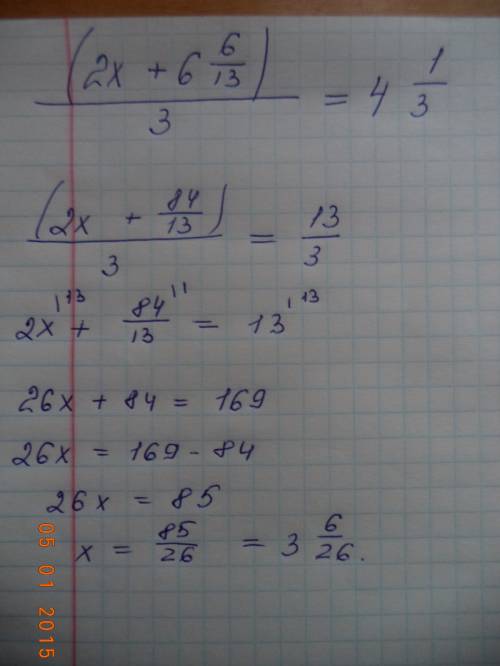 (2x + 6 6/13) / 3 = 4 1/3
(2x + 84/13) / 3 = 13/3
2x |13 + 84/13 |1 = 13 |13
26x + 84 = 169
26x = 169 - 84
26x = 85
x = 85/26 = 3 6/26.
05 01 2015